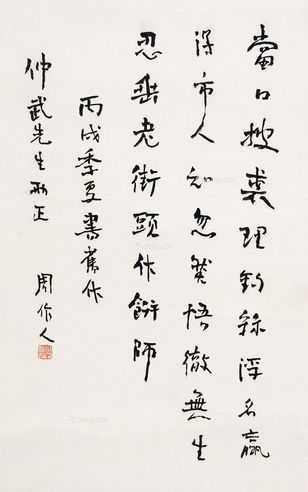 當日披裘理釣絲浮名贏
得市人知忽然悟徹無生
忍垂老街頭作餅師
丙戌季夏書舊作
仲武先生雅正 周作人